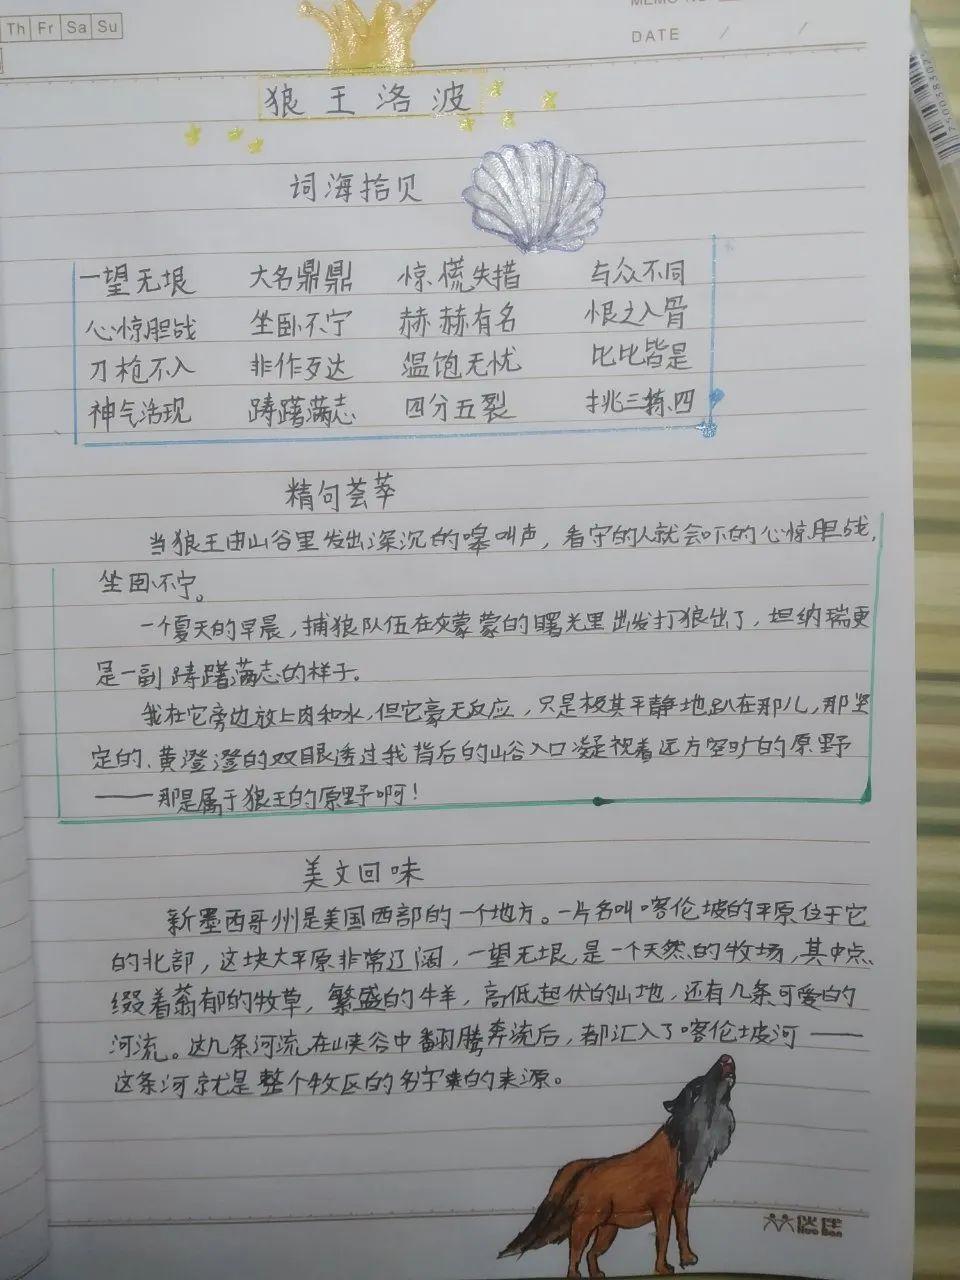 Th Fr Sa Su
MEMO NO
DATE / /
狼王洛波
词海拾贝
一望无垠 大名鼎鼎 惊慌失措 与众不同
心惊胆战 坐卧不宁 赫赫有名 恨之入骨
刀枪不入 非作歹达 温饱无忧 比比皆是
神气活现 踌躇满志 四分五裂 挑三拣四
精句荟萃
当狼王由山谷里发出深沉的嗥叫声，看守的人就会吓的心惊胆战，
坐卧不宁。
一个夏天的早晨，捕狼队伍在蒙蒙的曙光里出发打狼出了，坦纳瑞更
是一副踌躇满志的样子。
我在它旁边放上肉和水，但它豪无反应，只是极其平静地趴在那儿，那坚
定的、黄澄澄的双眼透过我背后的山谷入口凝视着远方空旷的原野
——那是属于狼王的原野啊！
美文回味
新墨西哥州是美国西部的一个地方。一片名叫喀伦坡的平原位于它
的北部，这块大平原非常辽阔，一望无垠，是一个天然的牧场，其中点
缀着蓊郁的牧草，繁盛的牛羊，高低起伏的山地，还有几条可爱的
河流。这几条河流在峡谷中翻腾奔流后，都汇入了喀伦坡河——
这条河就是整个牧区的名字的来源。
伙伴
Huo Ban